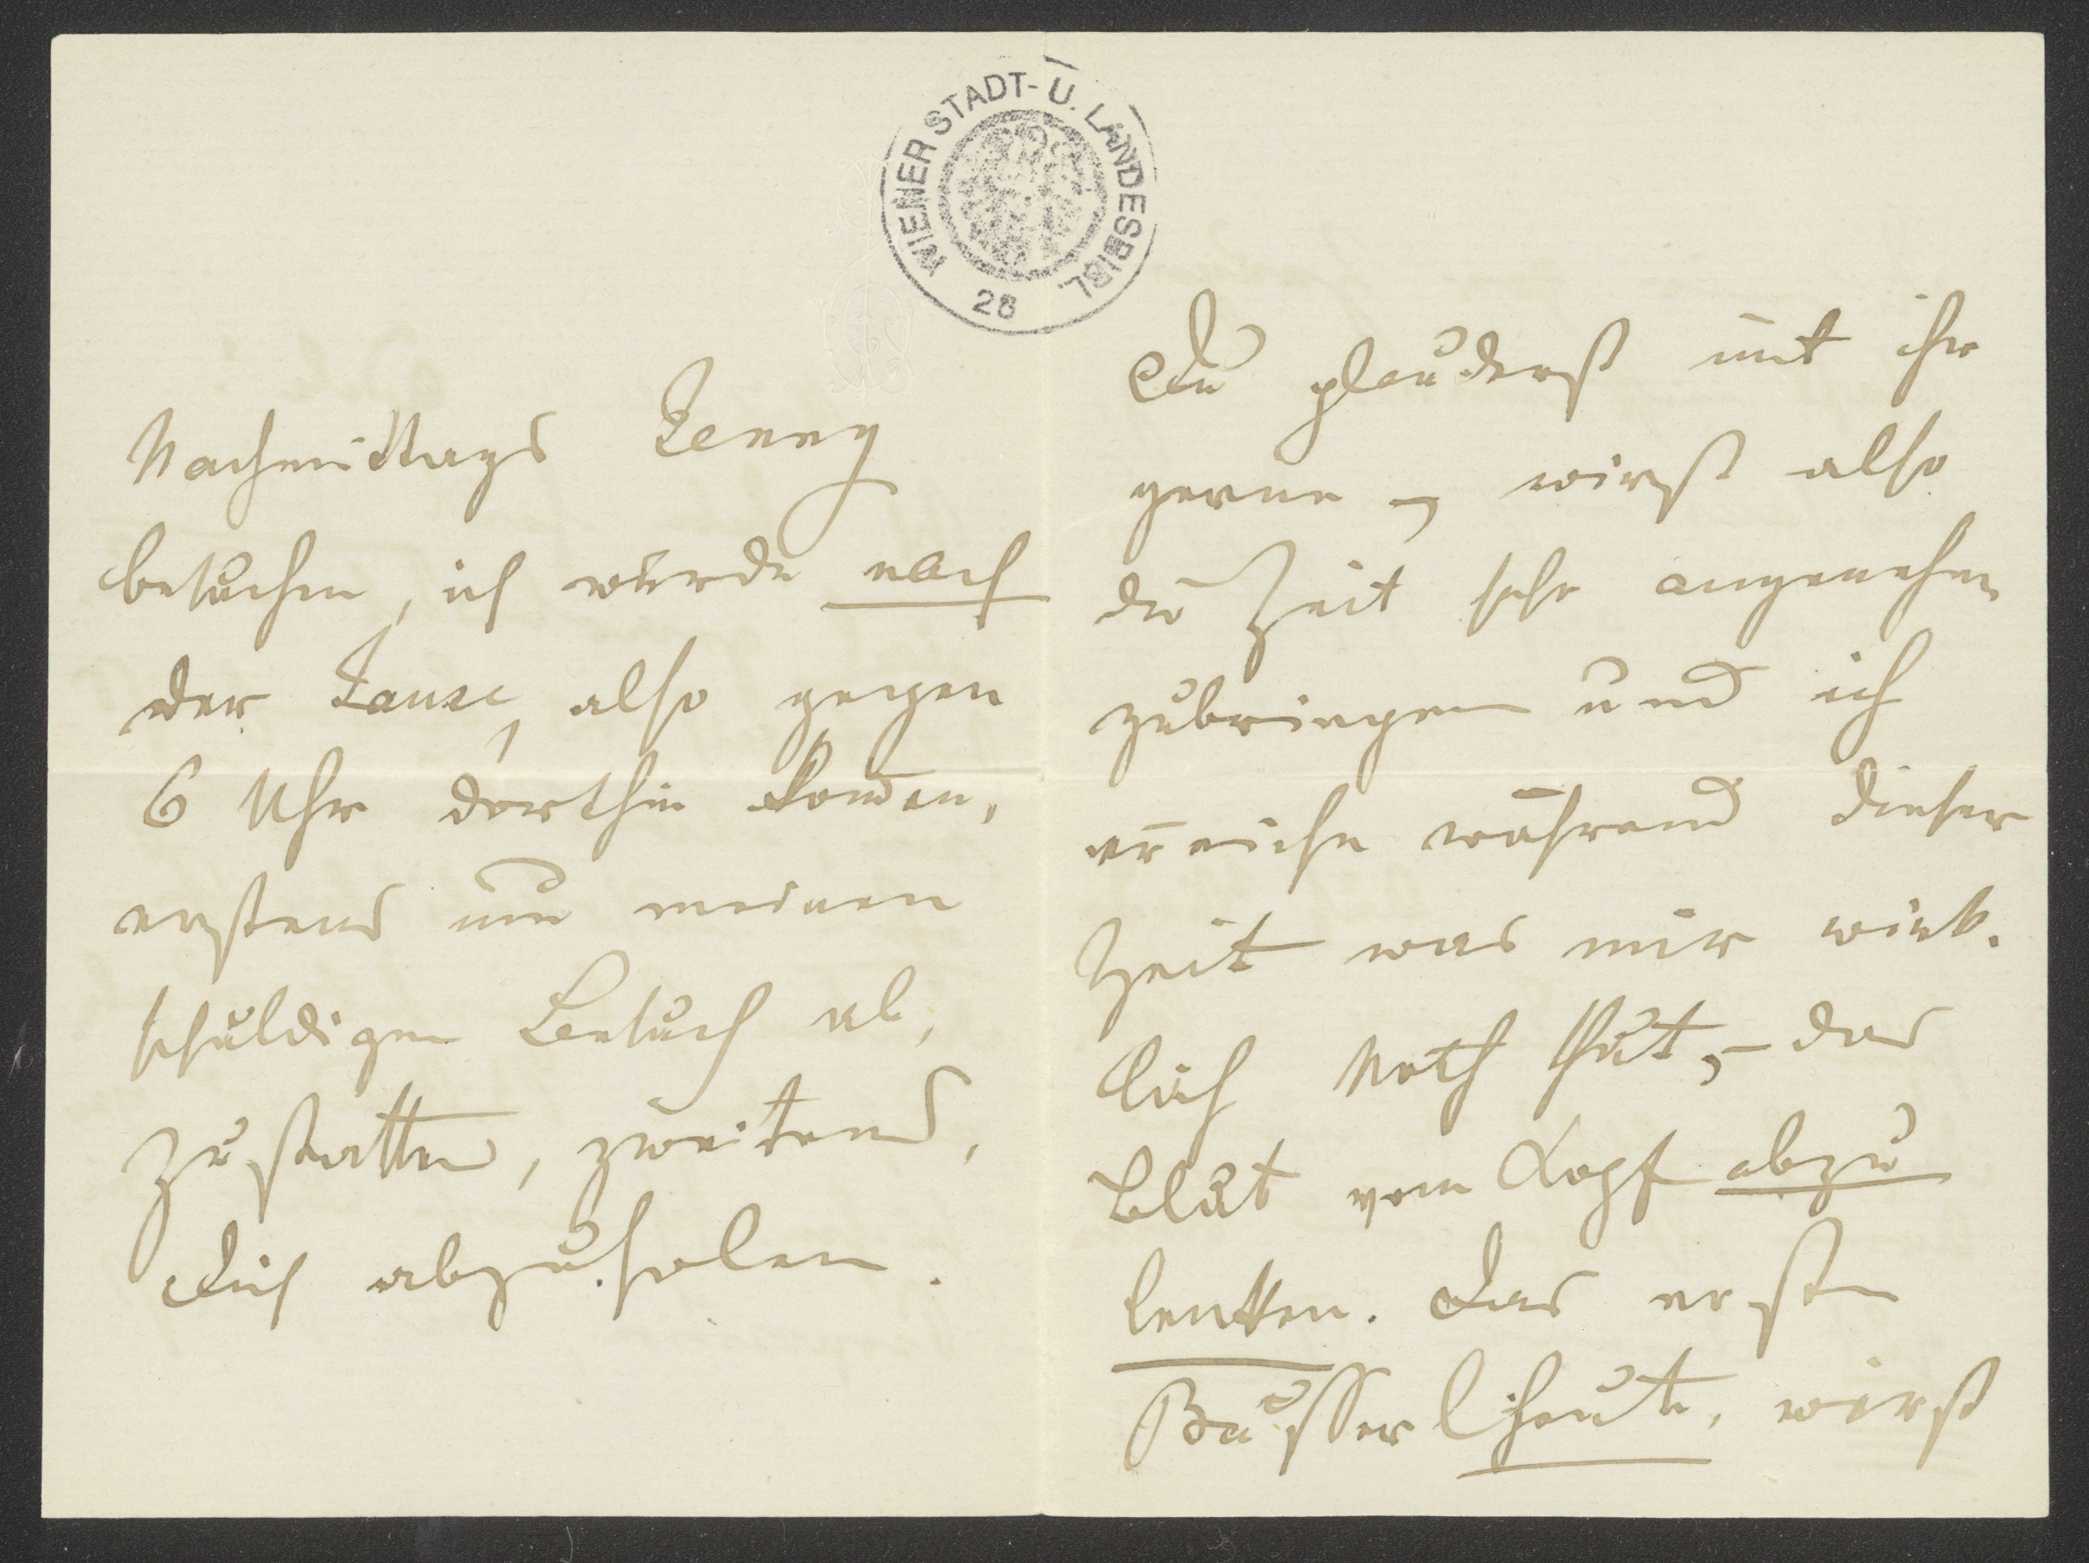 WIENER STADT- U. LANDESBIBL.
28
Nachmittags Jenny
besuchen, ich würde nach
der Jause, also gegen
6 Uhr dorthin kom̄en,
erstens um meinen
schuldigen Besuch ab,
zustatten, zweitens,
Dich abzuholen.
Du plauderst mit ihr
gerne, wirst also
die Zeit sehr angenehm
zubringen und ich
erreiche während dieser
Zeit was mir wirk.
lich Noth thut, – das
Blut vom Kopf abzu
lenken. Das erste
Busserl heute, wirst